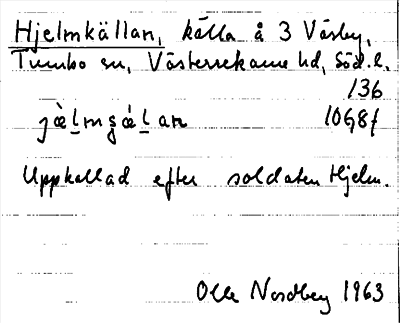 Hjelmkällan, källa å 3 Väsby,
Tumbo sn, Västerrekarne hd, Söd. l.
136
jæ̀lmɕæ̀lan 10G8f
Uppkallad efter soldaten Hjelm.
Olle Nordberg 1963